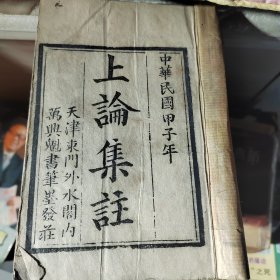 中華民國甲子年
上論集註
天津東門外水閣內
萬興魁書筆墨發莊